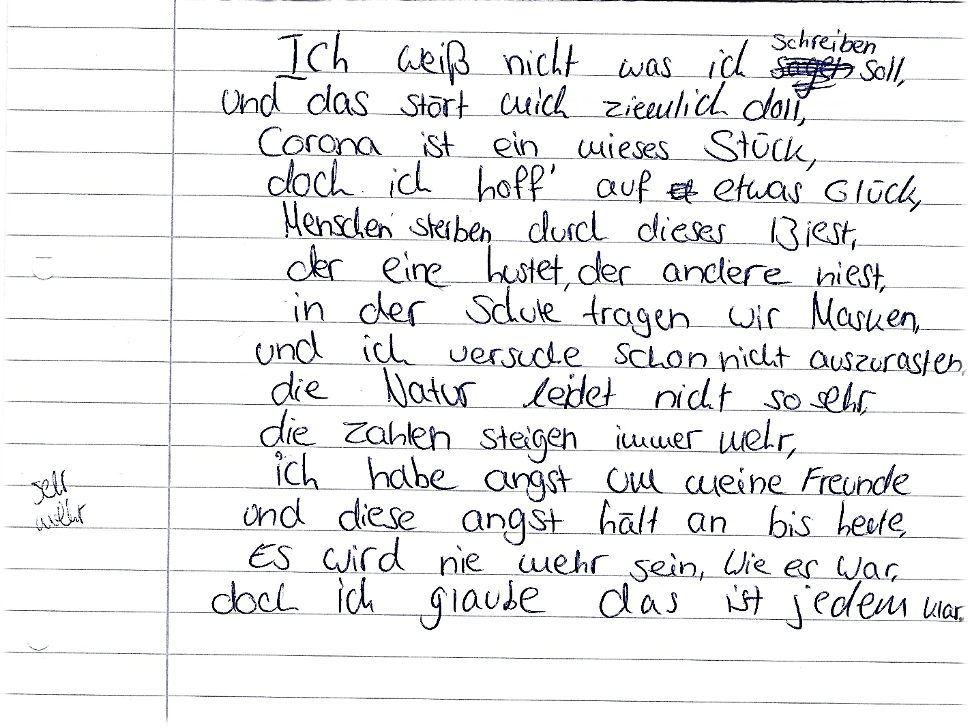 Ich weiß nicht was ich schreiben soll,
und das stört mich ziemlich doll,
Corona ist ein mieses Stück,
doch ich hoff' auf etwas Glück,
Menschen sterben durch dieses Biest,
der eine hustet, der andere niest,
in der Schule tragen wir Masken,
und ich versuche schon nicht auszurasten,
die Natur leidet nicht so sehr,
die Zahlen steigen immer mehr,
ich habe angst um meine Freunde
und diese angst hält an bis heute,
Es wird nie mehr sein, Wie es War,
doch ich glaube das ist jedem klar.
sehr
mehr